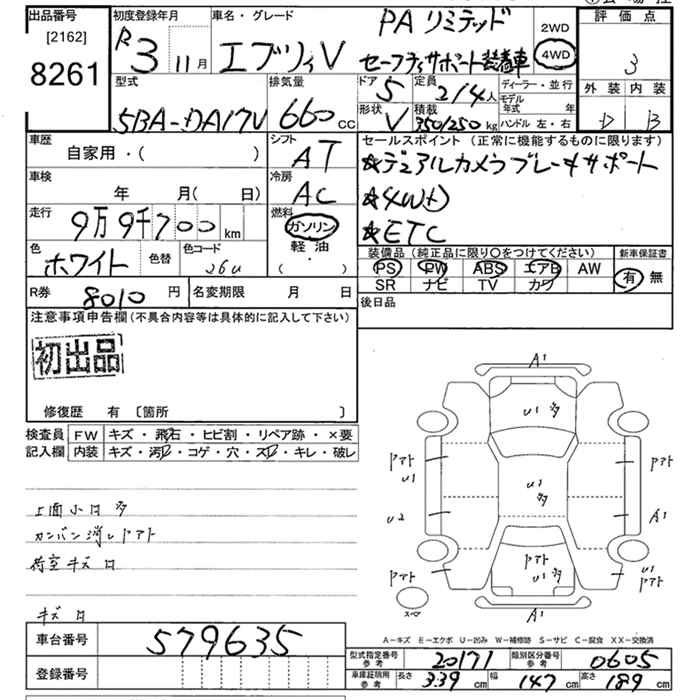 出品番号 [2162] 8261
初度登録年月 R3 11月
車名・グレード エブリィV PA リミテッド
セーフティサポート装着車
2WD
4WD
評価点 3
外装 D 内装 B
型式 5BA-DA17V
排気量 660 cc
ドア 5 定員 2/4人
形状 V 積載 350/250 kg
ディーラー・並行
モデル年式 年
ハンドル 左・右
車歴 自家用・( )
シフト AT
セールスポイント (正常に機能するものに限ります)
★デュアルカメラブレーキサポート
★4WD
★ETC
車検 年 月( 日)
冷房 AC
走行 9万9千700 km
燃料 ガソリン
軽油・( )
色 ホワイト 色替 色コード 26U
装備品 (純正品に限り○をつけてください) 新車保証書
PS PW ABS エアB AW 有 無
SR ナビ TV カワ
R券 8010 円 名変期限 月 日
後日品
注意事項申告欄(不具合内容等は具体的に記入して下さい)
初出品
修復歴 有 〔箇所 〕
検査員記入欄 FW キズ・飛石・ヒビ割・リペア跡・×要
内装 キズ・汚・コゲ・穴・スレ・キレ・破レ
上面小凹多
カンバン消しアト
荷室キズ凹
キズ凹
A1
U1多
アト U1
アト
U1多
U2
A1
アト
アト U1多
U1 アト
スペア
A1
A-キズ E-エクボ U-凹み W-補修跡 S-サビ C-腐食 XX-交換済
車台番号 579635
登録番号
型式指定番号 参考 20171 類別区分番号 参考 0605
車庫証明用 参考 長さ 3.39 cm 幅 147 cm 高さ 189 cm